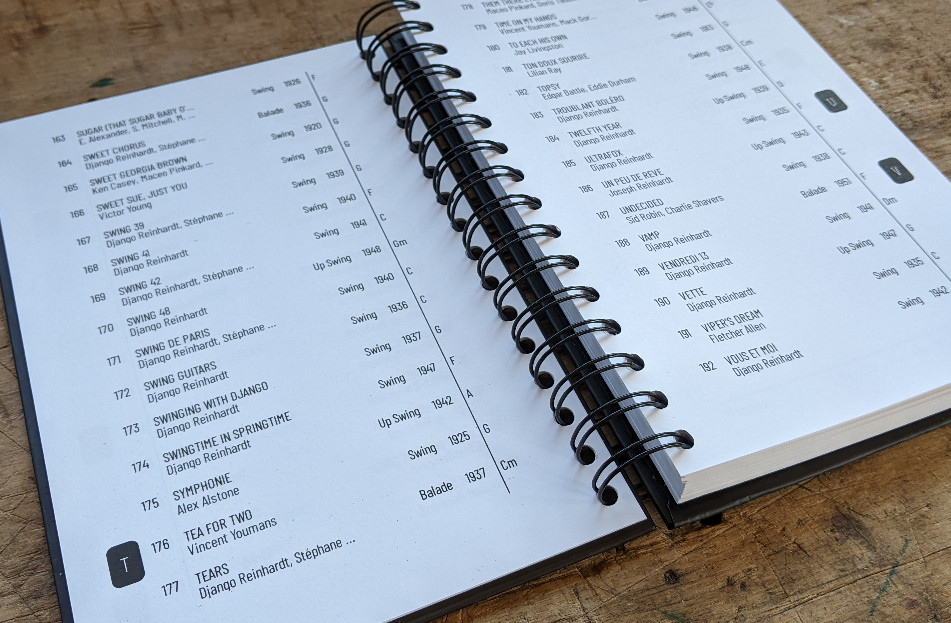 163 SUGAR (THAT SUGAR BABY O'... Swing 1926 F
E. Alexander, S. Mitchell, M. ...
164 SWEET CHORUS Balade 1936 G
Django Reinhardt, Stéphane ...
165 SWEET GEORGIA BROWN Swing 1920 G
Ken Casey, Maceo Pinkard, ...
166 SWEET SUE, JUST YOU Swing 1928 G
Victor Young
167 SWING 39 Swing 1939 G
Django Reinhardt, Stéphane ...
168 SWING 41 Swing 1940 F
Django Reinhardt
169 SWING 42 Swing 1941 C
Django Reinhardt, Stéphane ...
170 SWING 48 Up Swing 1948 Gm
Django Reinhardt
171 SWING DE PARIS Swing 1940 C
Django Reinhardt, Stéphane ...
172 SWING GUITARS Swing 1936 C
Django Reinhardt
173 SWINGING WITH DJANGO Swing 1937 G
Django Reinhardt
174 SWINGTIME IN SPRINGTIME Swing 1947 F
Django Reinhardt
175 SYMPHONIE Up Swing 1942 A
Alex Alstone
T
176 TEA FOR TWO Swing 1925 G
Vincent Youmans
177 TEARS Balade 1937 Cm
Django Reinhardt, Stéphane ...
178 THEM THERE
Maceo Pinkard, Doris
179 TIME ON MY HANDS
Vincent Youmans, Mack Gor...
180 TO EACH HIS OWN Swing
Jay Livingston
181 TON DOUX SOURIRE Swing
Lilian Ray
182 TOPSY Swing 1938 Cm
Edgar Battle, Eddie Durham
183 TROUBLANT BOLÉRO Swing 1948
Django Reinhardt
184 TWELFTH YEAR Up Swing 1939 D
Django Reinhardt
U
185 ULTRAFOX Swing 1935 F
Django Reinhardt
186 UN PEU DE REVE Up Swing 1943 C
Joseph Reinhardt
187 UNDECIDED Swing 1938 C
Sid Robin, Charlie Shavers
V
188 VAMP Balade 1951 F
Django Reinhardt
189 VENDREDI 13 Swing Gm
Django Reinhardt
190 VETTE Up Swing 1947 G
Django Reinhardt
191 VIPER'S DREAM Swing 1935 C
Fletcher Allen
192 VOUS ET MOI Swing 1942
Django Reinhardt